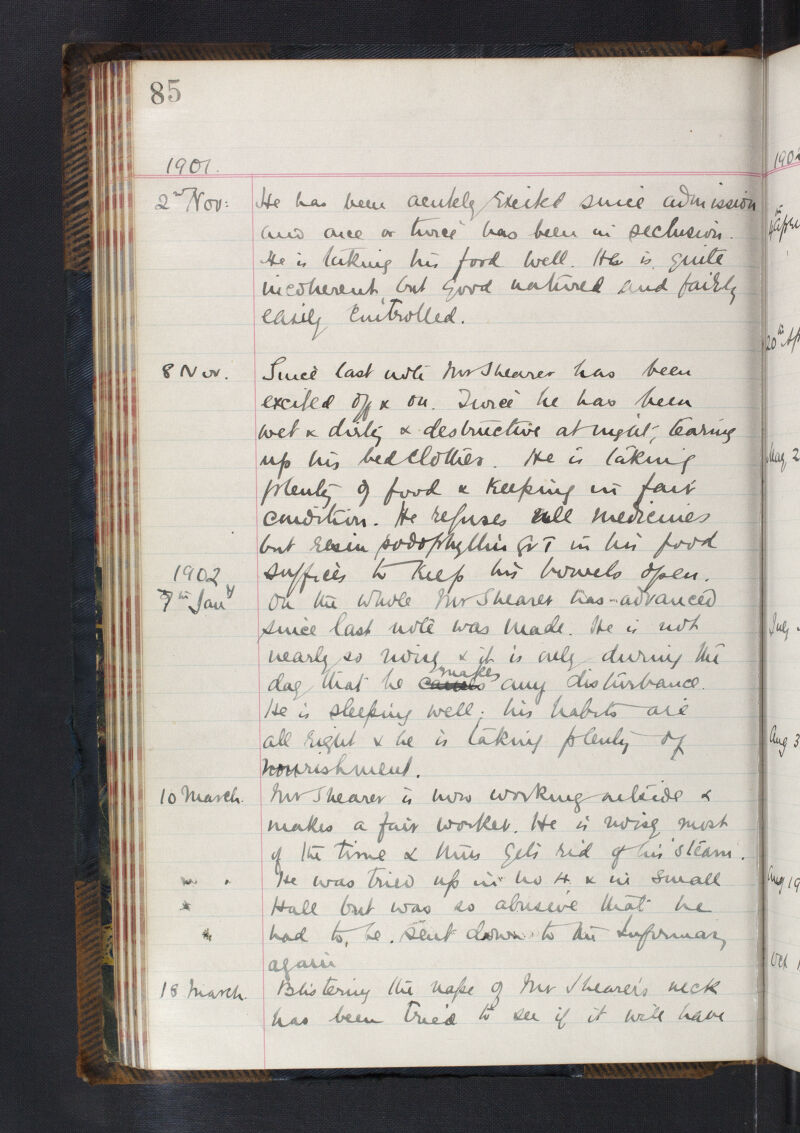 85
1901.
2nd Nov: He has been acutely excited since admission
and once or twice has been in seclusion.
He is taking his food well. He is quite
incoherent, but good natured and fairly
easily controlled.
8 Nov. Since last note Mr Shearer has been
excited off & on. Twice he has been
wet & dirty & destructive at night, tearing
up his bedclothes. He is taking
plenty of food & keeping in fair
condition. He refuses all medicines
but resin podophyllin gr T in his food
suffices to keep his bowels open.
1902
7th Jany On the whole Mr Shearer has advanced
since last note was made. He is not
nearly so noisy & it is only during the
day that he makes any disturbance.
He is sleeping well; his habits are
all right & he is taking plenty of
nourishment.
10 March. Mr Shearer is now working outside &
makes a fair worker. He is noisy most
of the time & thus gets rid of his 'steam'.
" " He was tried up in no 4 & in small
Hall but was so abusive that he
had to be sent down to the Infirmary
again
18 March. Blistering the nape of Mr Shearer's neck
has been tried to see if it will have
190
20th Ap
May 2
July
Aug 3
Aug 19
Oct 1